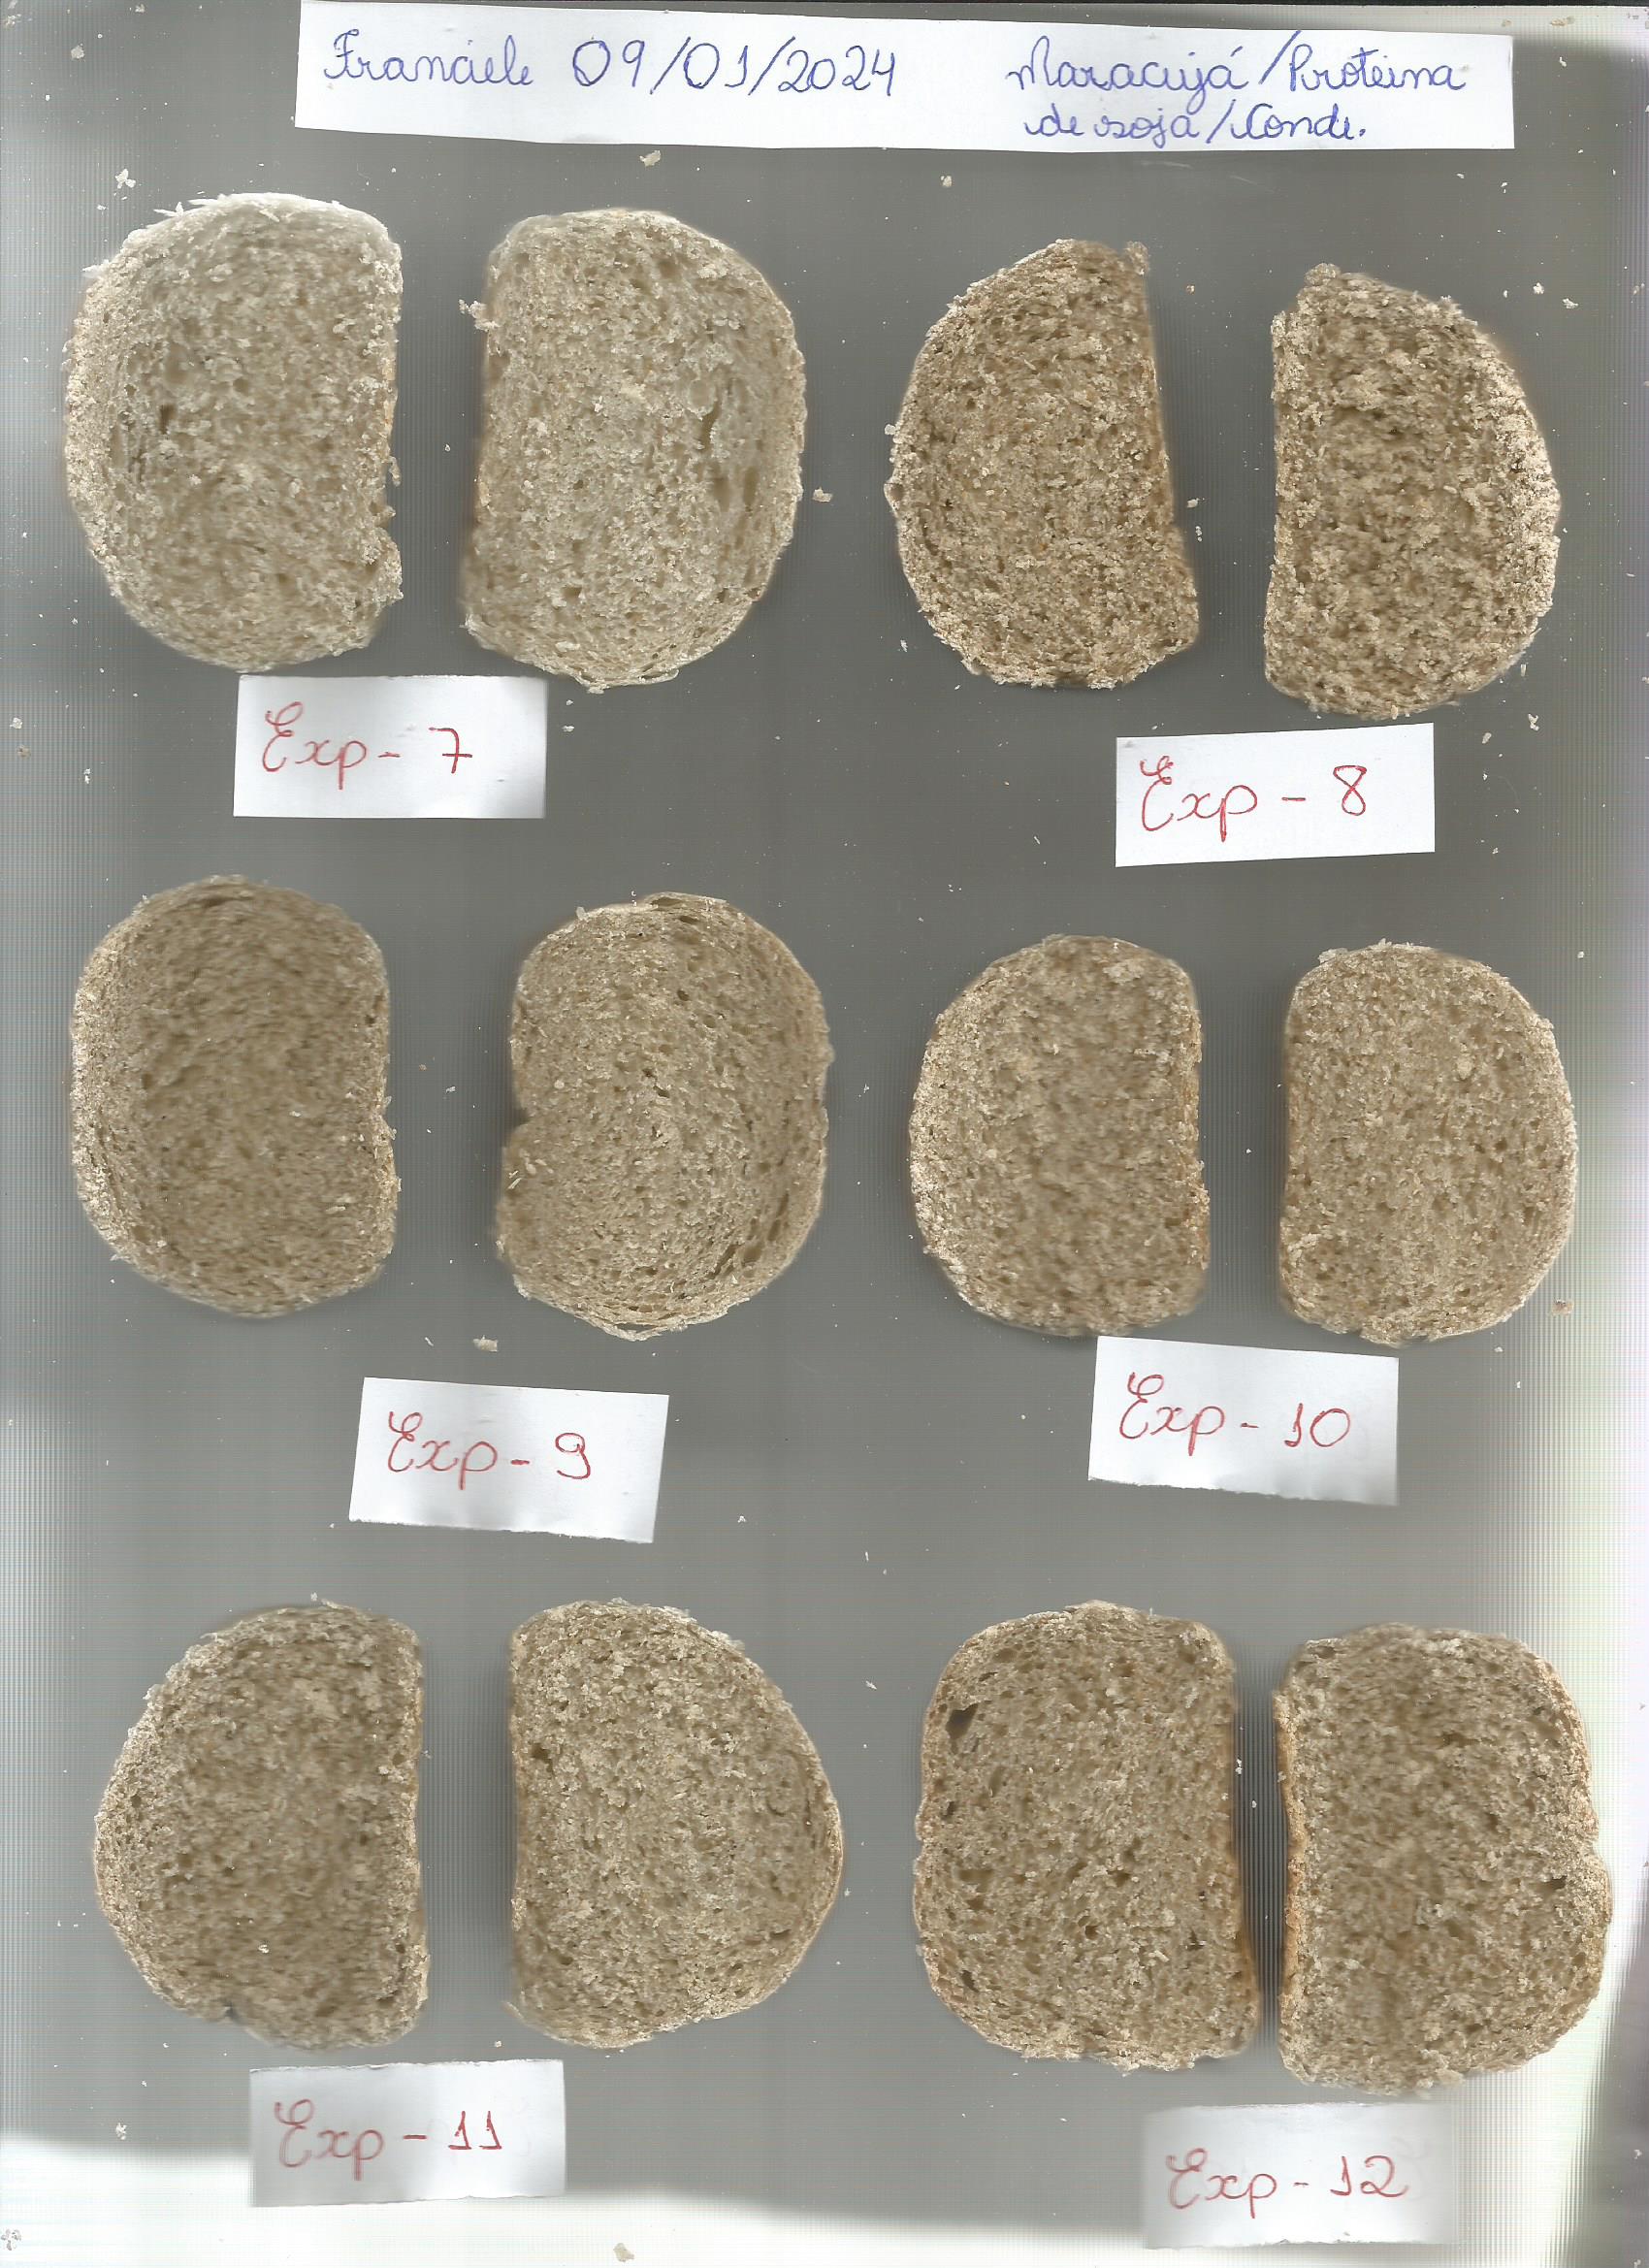 Franciele 09/01/2024 Maracujá/Proteína
de soja/Cond.
Exp-7
Exp-8
Exp-9
Exp-10
Exp-11
Exp-12